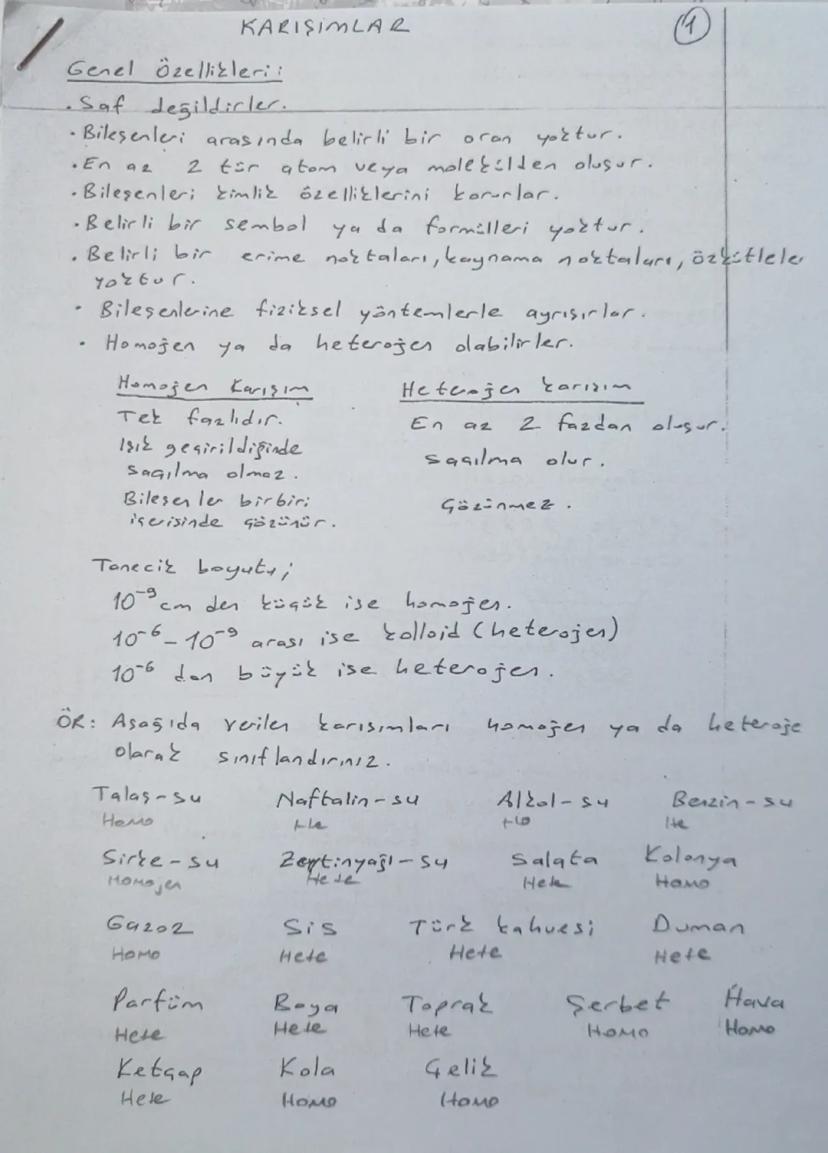 KARIŞIMLAR
1
Genel Özellikleri:
• Saf değildirler.
• Bileşenleri arasında belirli bir oran yoktur.
• En az 2 tür atom veya molekülden oluşur.
• Bileşenleri kimlik özelliklerini korurlar.
• Belirli bir sembol ya da formülleri yoktur.
• Belirli bir erime noktaları, kaynama noktaları, özkütleler
yoktur.
• Bileşenlerine fiziksel yöntemlerle ayrışırlar.
• Homojen ya da heterojen olabilirler.
Homojen Karışım Heterojen karışım
Tek fazlıdır. En az 2 fazdan oluşur.
Işık geçirildiğinde
saçılma olmaz. Saçılma olur.
Bileşenler birbiri
içerisinde çözünür. Çözünmez.
Tanecik boyutu;
10⁻⁹ cm den küçük ise homojen.
10⁻⁶ – 10⁻⁹ arası ise kolloid (heterojen)
10⁻⁶ dan büyük ise heterojen.
ÖR: Aşağıda verilen karışımları homojen ya da heteroje
olarak sınıflandırınız.
Talaş-su Naftalin-su Alkol-su Benzin-su
Homo He Ho He
Sirke-su Zeytinyağı-su Salata Kolonya
Homojen Hete Hete Homo
Gazoz Sis Türk kahvesi Duman
Homo Hete Hete Hete
Parfüm Boya Toprak Şerbet Hava
Hete Hete Hete Homo Homo
Ketçap Kola Çelik
Hete Homo Homo